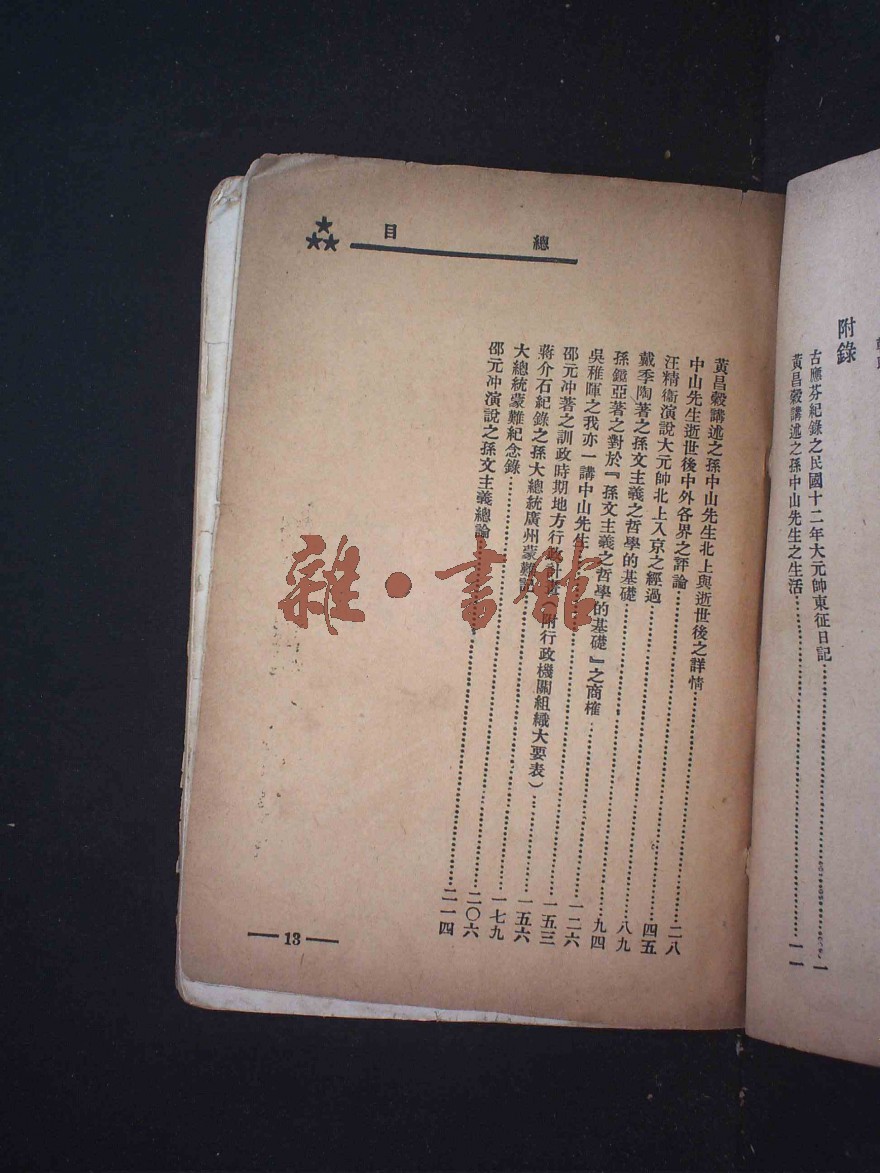 附錄
古應芬紀錄之民國十二年大元帥東征日記……一
黃昌穀講述之孫中山先生之生活……一一
總目
黃昌穀講述之孫中山先生北上與逝世後之詳情……二八
中山先生逝世後中外各界之評論……四五
汪精衛演說大元帥北上入京之經過……八九
戴季陶著之孫文主義之哲學的基礎……九四
孫鏡亞著之對於『孫文主義之哲學的基礎』之商榷……一二六
吳稚暉之我亦一講中山先生……一五三
邵元冲著之訓政時期地方行政計畫（附行政機關組織大要表）……一五六
蔣介石紀錄之孫大總統廣州蒙難記……一七九
大總統蒙難紀念錄……二〇六
邵元冲演說之孫文主義總論……二一四
13
雜·書館